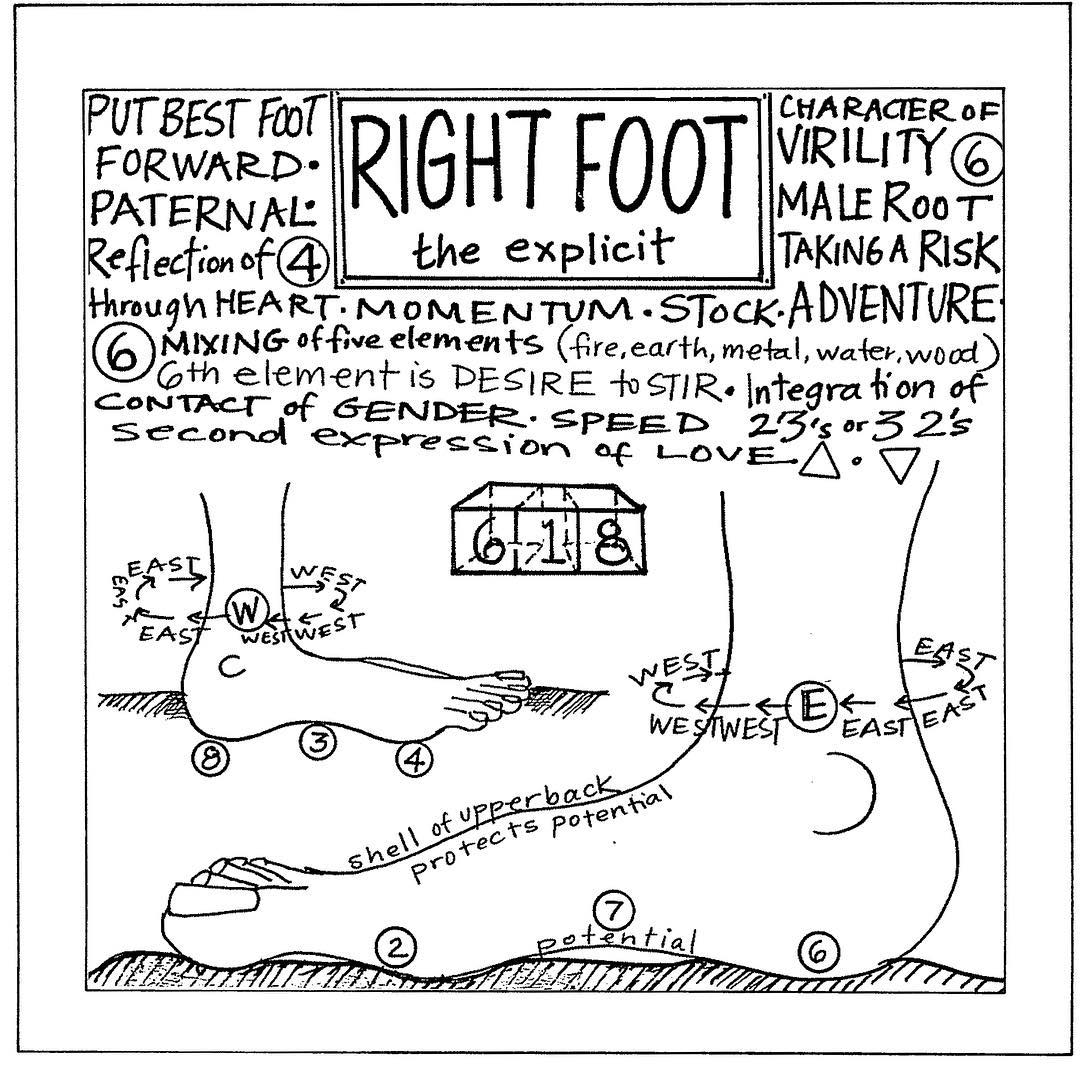 PUT BEST FOOT
FORWARD.
PATERNAL.
Reflection of 4
RIGHT FOOT
the explicit
CHARACTER OF
VIRILITY 6
MALE ROOT
TAKING A RISK
through HEART. MOMENTUM. STOCK. ADVENTURE.
6 MIXING of five elements (fire, earth, metal, water, wood)
6th element is DESIRE to STIR. Integration of
CONTACT of GENDER. SPEED 2 3's or 3 2's
second expression of LOVE △ . ▽
6 1 8
EAST
EAST
EAST
W
WEST
WEST
WEST
C
8
3
4
WEST
WEST
WEST
E
EAST
EAST
EAST
shell of upperback
protects potential
2
7
potential
6